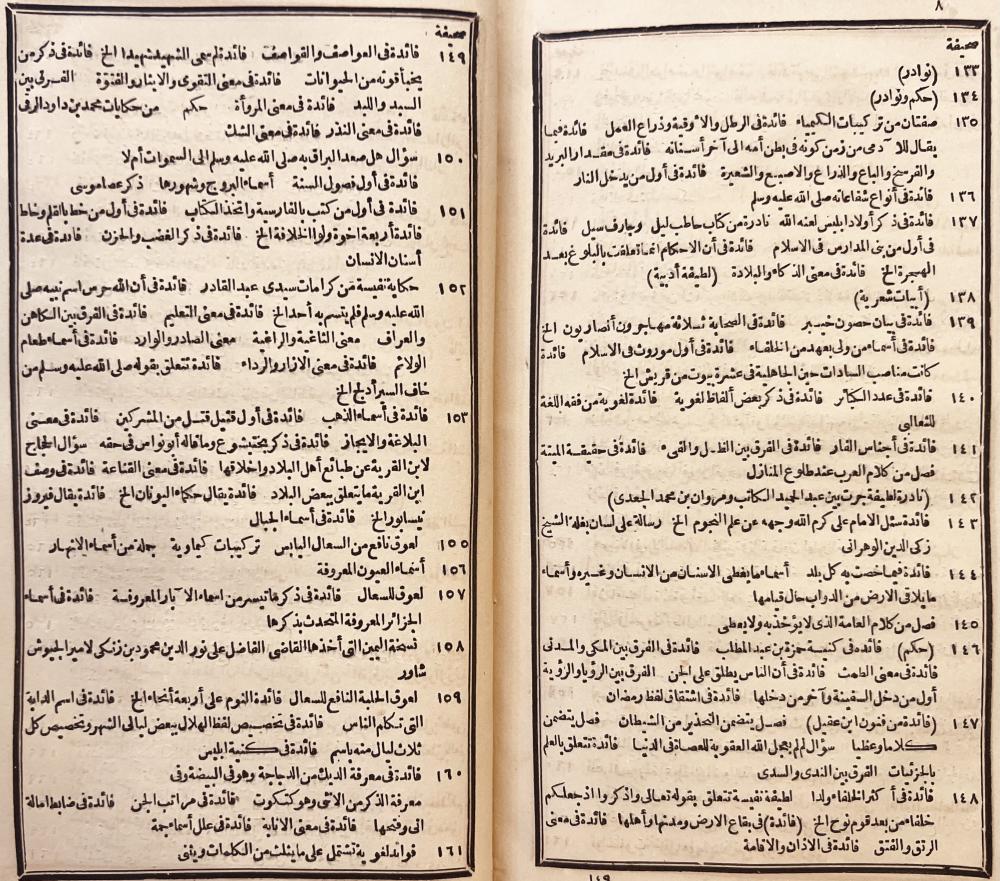 ٨
صحيفة
١٣٣ (نوادر)
١٣٤ (حكم ونوادر)
١٣٥ صفتان من تركيبات الكيمياء فائدة فى الرطل والاوقية وذراع العمل فائدة فيما
يقال للآدمى من زمن كونه فى بطن أمه الى آخر أسنانه فائدة فى مقدار البريد
والفرسخ والباع والذراع والاصبع والشعيرة فائدة فى أول من يدخل النار
١٣٦ فائدة فى أنواع شفاعاته صلى الله عليه وسلم
١٣٧ فائدة فى ذكر أولاد ابليس لعنه الله نادرة من كتاب حاطب ليل وجارف سيل فائدة
فى أول من بنى المدارس فى الاسلام فائدة فى أن الاحكام انما تعلقت بالبلوغ بعد
الهجرة الخ فائدة فى معنى الذكاء والبلادة (لطيفة أدبية)
١٣٨ (أبيات شعرية)
١٣٩ فائدة فى بيان حصون خيبر فائدة فى الصحابة ثلاثة مهاجرون أنصاريون الخ
فائدة فى أسماء من ولى بعهد من الخلفاء فائدة فى أول موروث فى الاسلام فائدة
كانت مناصب السادات حين الجاهلية فى عشرة بيوت من قريش الخ
١٤٠ فائدة فى عدد الكبائر فائدة فى ذكر بعض ألفاظ لغوية فائدة لغوية من فقه اللغة
للثعالبى
١٤١ فائدة فى أجناس الفار فائدة فى الفرق بين الظل والفىء فائدة فى حقيقة الميتة
فصل من كلام العرب عند طلوع المنازل
١٤٢ (نادرة لطيفة جرت بين عبد الحميد الكاتب ومروان بن محمد الجعدى)
١٤٣ فائدة سئل الامام على كرم الله وجهه عن علم النجوم الخ رسالة على لسان بغلة الشيخ
زكى الدين الوهرانى
١٤٤ فائدة فيما خصت به كل بلد أسماء ما يغطى الاسنان من الانسان وغيره وأسماء
ما يلاقى الارض من الدواب حال قيامها
١٤٥ فصل من كلام العامة الذى لا يؤخذ به ولا يعطى
١٤٦ (حكم) فائدة فى كنية حمزة بن عبد المطلب فائدة فى الفرق بين المكى والمدنى
فائدة فى معنى الطمث فائدة فى أن الناس يطلق على الجن الفرق بين الرؤيا والرؤية
أول من دخل السفينة وآخر من دخلها فائدة فى اشتقاق لفظ رمضان
١٤٧ (فائدة من فنون ابن عقيل) فصل يتضمن التحذير من الشيطان فصل يتضمن
كلاما وعظيا سؤال لم لم يعجل الله العقوبة للعصاة فى الدنيا فائدة تتعلق بالعلم
بالجزئيات الفرق بين الندى والسدى
١٤٨ فائدة فى أكثر الخلفاء ولدا لطيفة نفيسة تتعلق بقوله تعالى واذكروا اذ جعلكم
خلفاء من بعد قوم نوح الخ (فائدة) فى بقاع الارض ومدنها وأهلها فائدة فى معنى
الرتق والفتق فائدة فى الاذان والاقامة
١٤٩
صحيفة
١٤٩ فائدة فى العواصف والقواصف فائدة لم سمى الشهيد شهيدا الخ فائدة فى ذكر من
يخبأ قوته من الحيوانات فائدة فى معنى التقوى والايثار والفتوة الفرق بين
السبد واللبد فائدة فى معنى المروأة حكم من حكايات محمد بن داود الرقى
فائدة فى معنى النذر فائدة فى معنى الشك
١٥٠ سؤال هل صعد البراق به صلى الله عليه وسلم الى السموات أم لا
فائدة فى أول فصول السنة أسماء البروج وشهورها ذكر عصا موسى
١٥١ فائدة فى أول من كتب بالفارسية واتخذ الكتاب فائدة فى أول من خط بالقلم وخاط
فائدة أربعة اخوة ولوا الخلافة الخ فائدة فى ذكر الغضب والحزن فائدة فى عدة
أسنان الانسان
١٥٢ حكاية نفيسة من كرامات سيدى عبد القادر فائدة فى أن الله حرس اسم نبيه صلى
الله عليه وسلم فلم يتسم به أحد الخ فائدة فى معنى التعليم فائدة فى الفرق بين الكاهن
والعراف معنى الثاغية والراغية معنى الصادر والوارد فائدة فى أسماء طعام
الولائم فائدة فى معنى الازار والرداء فائدة تتعلق بقوله صلى الله عليه وسلم من
خاف السير أدلج الخ
١٥٣ فائدة فى أسماء الذهب فائدة فى أول قتيل قتل من المشركين فائدة فى معنى
البلاغة والايجاز فائدة فى ذكر بختيشوع وما قاله أبو نواس فى حقه سؤال الحجاج
لابن القرية عن طبائع أهل البلاد واخلاقها فائدة فى معنى القناعة فائدة فى وصف
ابن القرية ما يتعلق ببعض البلاد فائدة يقال حكماء اليونان الخ فائدة يقال فيروز
نيسابور الخ فائدة فى أسماء الجبال
١٥٥ لعوق نافع من السعال اليابس تركيبات كيماوية جملة من أسماء الانهار
١٥٦ أسماء العيون المعروفة
١٥٧ لعوق للسعال فائدة فى ذكر ما تيسر من اسماء الآبار المعروفة فائدة فى أسماء
الجزائر المعروفة المتحدث بذكرها
١٥٨ نسخة اليمين التى أخذها القاضى الفاضل على نور الدين محمود بن زنكى لامير الجيوش
شاور
١٥٩ لعوق الحلبة النافع للسعال فائدة النوم على أربعة أنحاء الخ فائدة فى اسم الدابة
التى تكلم الناس فائدة فى تخصيص لفظ الهلال ببعض ليالى الشهر وتخصيص كل
ثلاث ليال منه باسم فائدة فى كنية ابليس
١٦٠ فائدة فى معرفة الديك من الدجاجة وهو فى البيضة وفى
معرفة الذكر من الانثى وهو كتكوت فائدة فى مراتب الجن فائدة فى ضابط امالة
انى وفتحها فائدة فى معنى الانابة فائدة فى علل أسماء جمة
١٦١ فوائد لغوية تشتمل على ما يثلث من الكلمات ويثنى